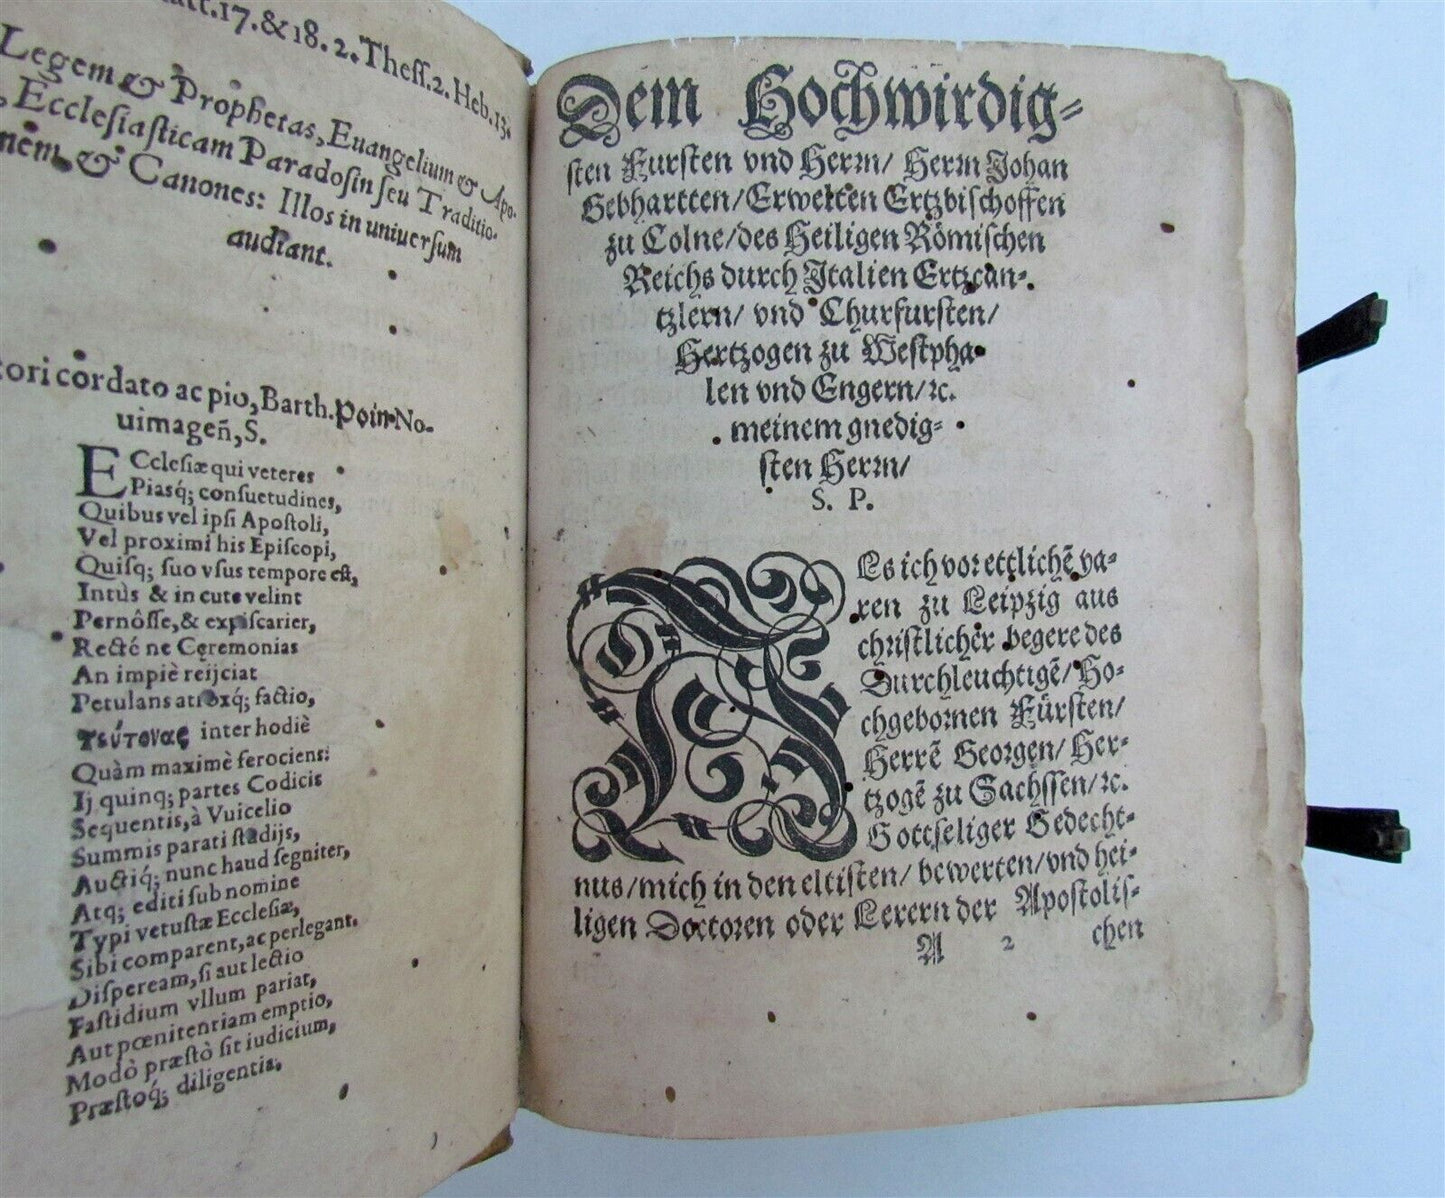 att.17.&18.2.Theſſ.2.Heb.13.
Legem & Prophetas, Euangelium & Apo-
, Eccleſiaſticam Paradoſin ſeu Traditio-
nem, & Canones: Illos in uniuerſum
audiant.
tori cordato ac pio, Barth. Poin No-
uimageñ, S.
ECcleſiæ qui veteres
Piasq́; conſuetudines,
Quibus vel ipſi Apoſtoli,
Vel proximi his Epiſcopi,
Quiſq; ſuo vſus tempore eſt,
Intùs & in cute velint
Pernôſſe, & expiſcarier,
Recté ne Ceremonias
An impiè reijciat
Petulans atroxq́; factio,
τεύτονας inter hodiè
Quàm maximè ferociens:
Ij quinq; partes Codicis
Sequentis, à Vuicelio
Summis parati ſtudijs,
Auctiq́; nunc haud ſegniter,
Atq; editi ſub nomine
Typi vetuſtæ Eccleſiæ,
Sibi comparent, ac perlegant.
Diſpeream, ſi aut lectio
Faſtidium vllum pariat,
Aut pœnitentiam emptio,
Modò præſtò ſit iudicium,
Præſtoq́; diligentia.
Dem Hochwirdig⸗
ſten Furſten vnd Herrn/ Herrn Johan
Gebhartten/ Erwelten Ertzbiſchoffen
zu Colne/ des Heiligen Römiſchen
Reichs durch Italien Ertzcan⸗
tzlern/ vnd Churfurſten/
Hertzogen zu Weſtpha⸗
len vnd Engern/ ꝛc.
meinem gnedig⸗
ſten Herrn/
S. P.
ALs ich vor ettlichē ya⸗
ren zu Leipzig aus
chriſtlicher begere des
Durchleuchtigē/ Ho⸗
chgebornen Fürſten/
Herrē Georgen/ Her⸗
tzogē zu Sachſſen/ ꝛc.
Gottſeliger Gedecht⸗
nus/ mich in den eltiſten/ bewerten/ vnd hei⸗
ligen Doctoren oder Lerern der Apoſtoliſ⸗
A 2 chen